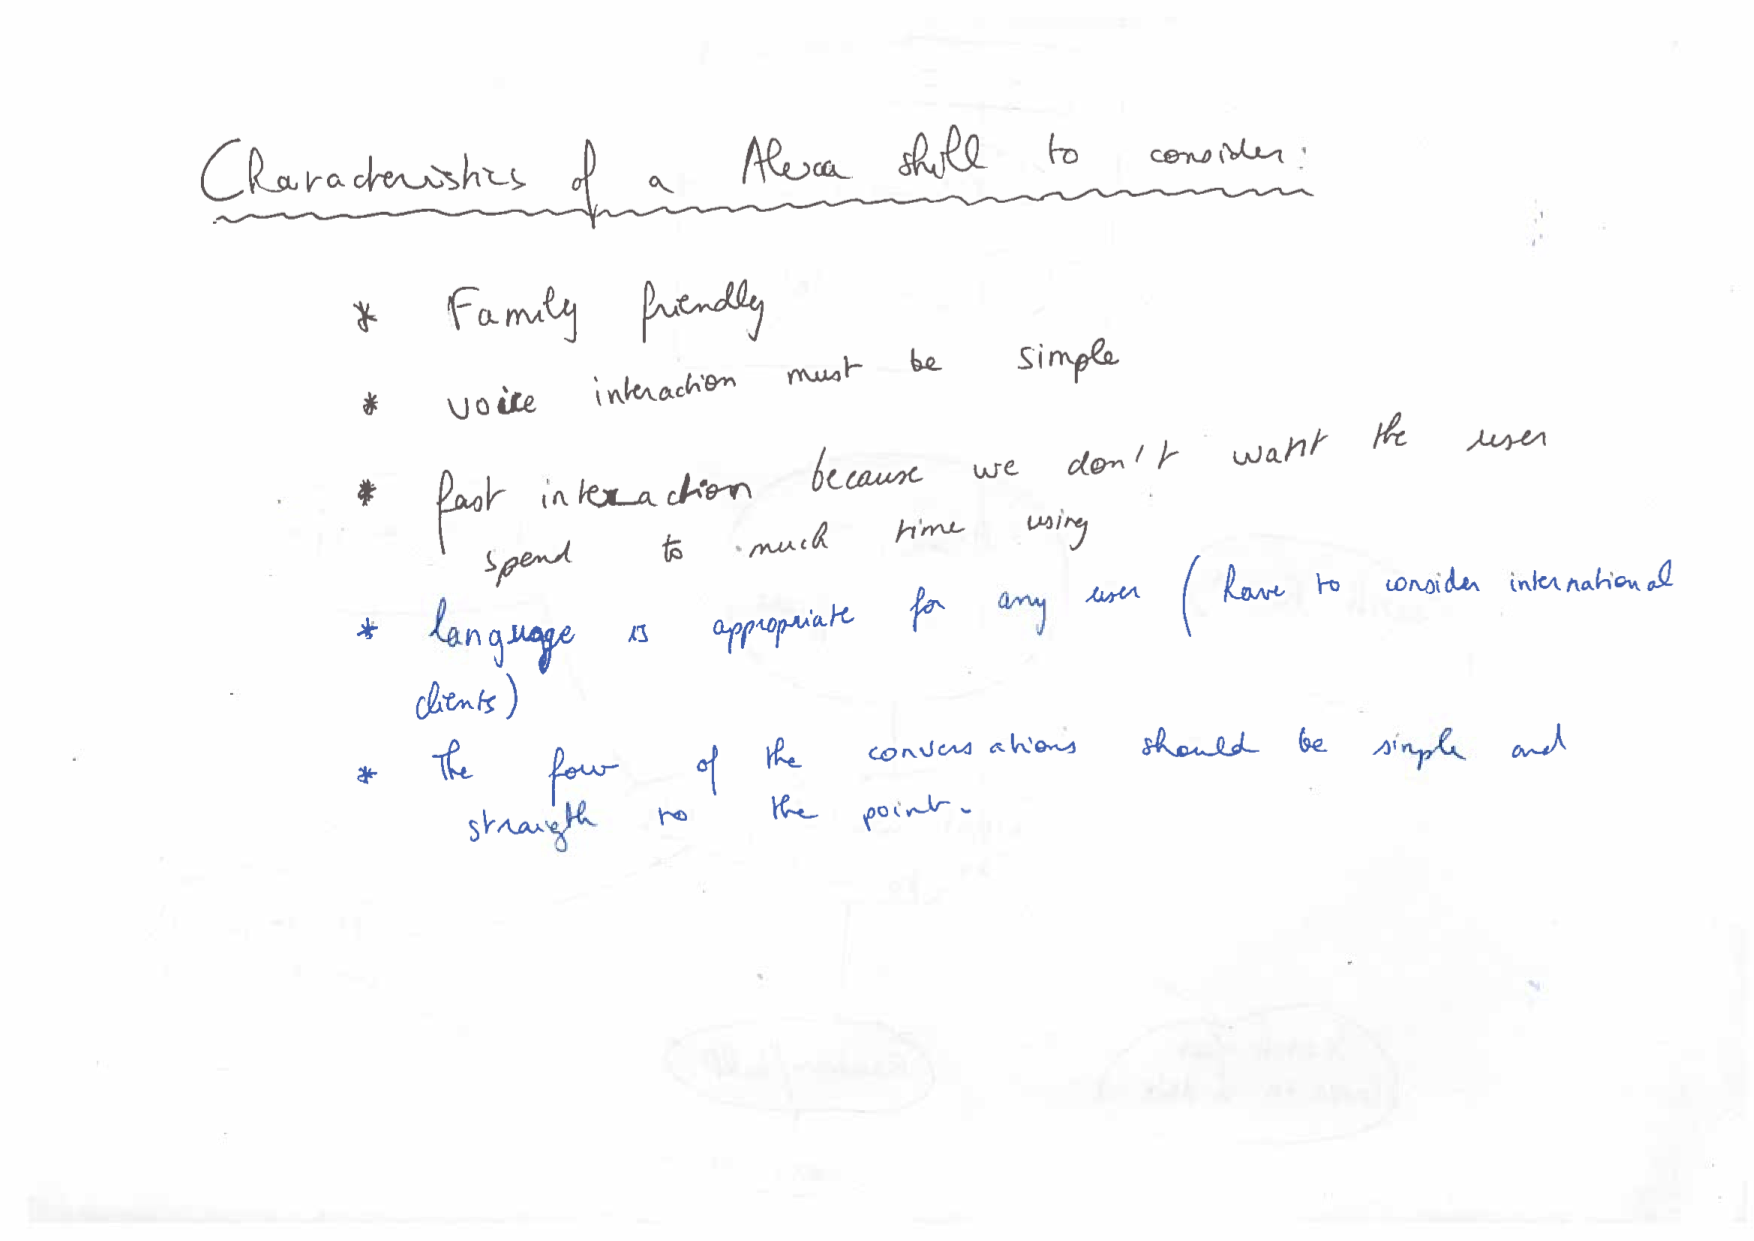 Characteristics of a Alexa skill to consider:
* Family friendly
* voice interaction must be simple
* fast interaction because we don't want the user
spend to much time using
* language is appropriate for any user (have to consider international
clients)
* The fow of the conversations should be simple and
straigth to the point.